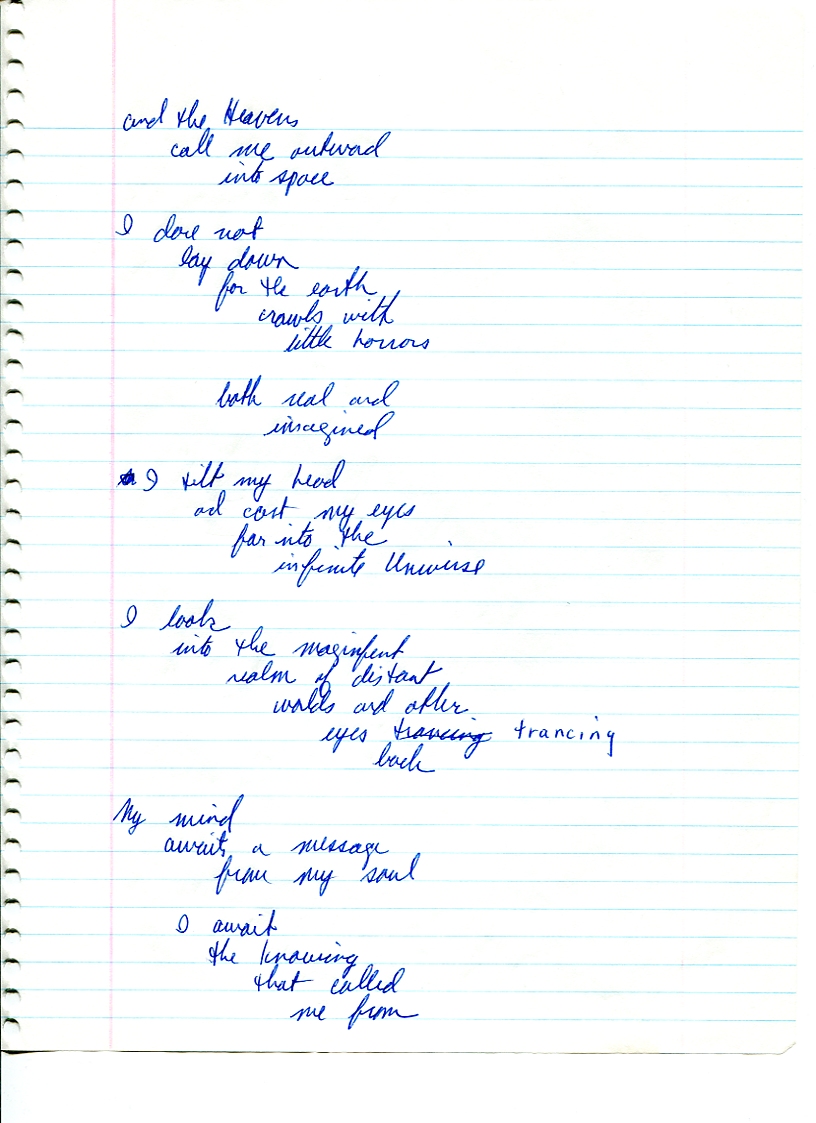 and the Heavens
call me outward
into space
I dare not
lay down
for the earth
crawls with
little horrors
both real and
imagined
I tilt my head
ad cast my eyes
far into the
infinite Universe
I look
into the maginfent
realm of distant
worlds and other
eyes trancing trancing
back
My mind
awaits a message
from my soul
I await
the knowing
that called
me from